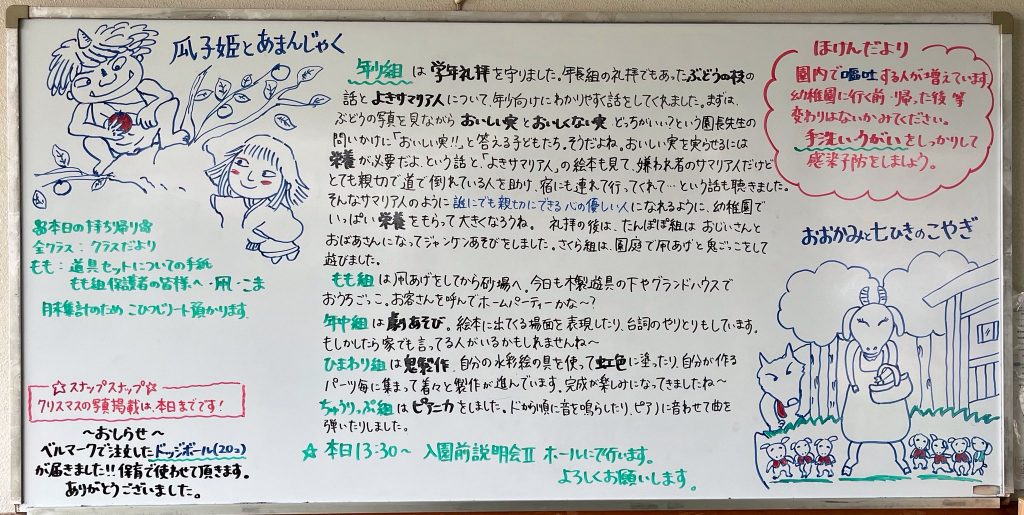 瓜子姫とあまんじゃく
本日の持ち帰り
全クラス：クラスだより
もも：道具セットについての手紙
もも組保護者の皆様へ・凧・こま
月末集計のため こひつじノート預かります。
☆スナップスナップ☆
クリスマスの写真掲載は、本日までです！
～おしらせ～
ベルマークで注文したドッジボール(20コ)
が届きました!!保育で使わせて頂きます。
ありがとうございました。
年少組 は 学年礼拝 を守りました。年長組の礼拝でもあったぶどうの枝の
話と よきサマリア人 について、年少向けにわかりやすく話をしてくれました。まずは、
ぶどうの写真を見ながら おいしい実 と おいしくない実 どっちがいい？という園長先生の
問いかけに「おいしい実!!」と答える子どもたち。そうだよね。おいしい実を実らせるには
栄養 が必要だよ、という話と、「よきサマリア人」の絵本も見て、嫌われ者のサマリア人だけど
とても親切で道で倒れている人を助け、宿にも連れて行ってくれて…という話も聴きました。
そんなサマリア人のように 誰にでも親切にできる心の優しい人 になれるように、幼稚園で
いっぱい 栄養 をもらって大きくなろうね。 礼拝の後は、たんぽぽ組は おじいさんと
おばあさんになってジャンケンあそびをしました。さくら組は、園庭で凧あげと鬼ごっこをして
遊びました。
もも組 は凧あげをしてから砂場へ。今日も木製遊具の下やグランドハウスで
おうちごっこ。お客さんを呼んでホームパーティーかな～？
年中組 は 劇あそび。絵本に出てくる場面を表現したり、台詞のやりとりもしています。
もしかしたら家でも言ってる人がいるかもしれませんね～
ひまわり組 は 鬼製作。自分の水彩絵の具を使って 虹色 に塗ったり、自分が作る
パーツ毎に集まって着々と製作が進んでいます。完成が楽しみになってきましたね～
ちゅうりっぷ組 は ピアニカ をしました。ドから順に音を鳴らしたり、ピアノに合わせて曲を
弾いたりしました。
☆ 本日13:30～ 入園前説明会Ⅱ ホールにて行います。
よろしくお願いします。
ほけんだより
園内で嘔吐する人が増えています。
幼稚園に行く前・帰った後 等
変わりはないかみてください。
手洗い・うがいをしっかりして
感染予防をしましょう。
おおかみと七ひきのこやぎ